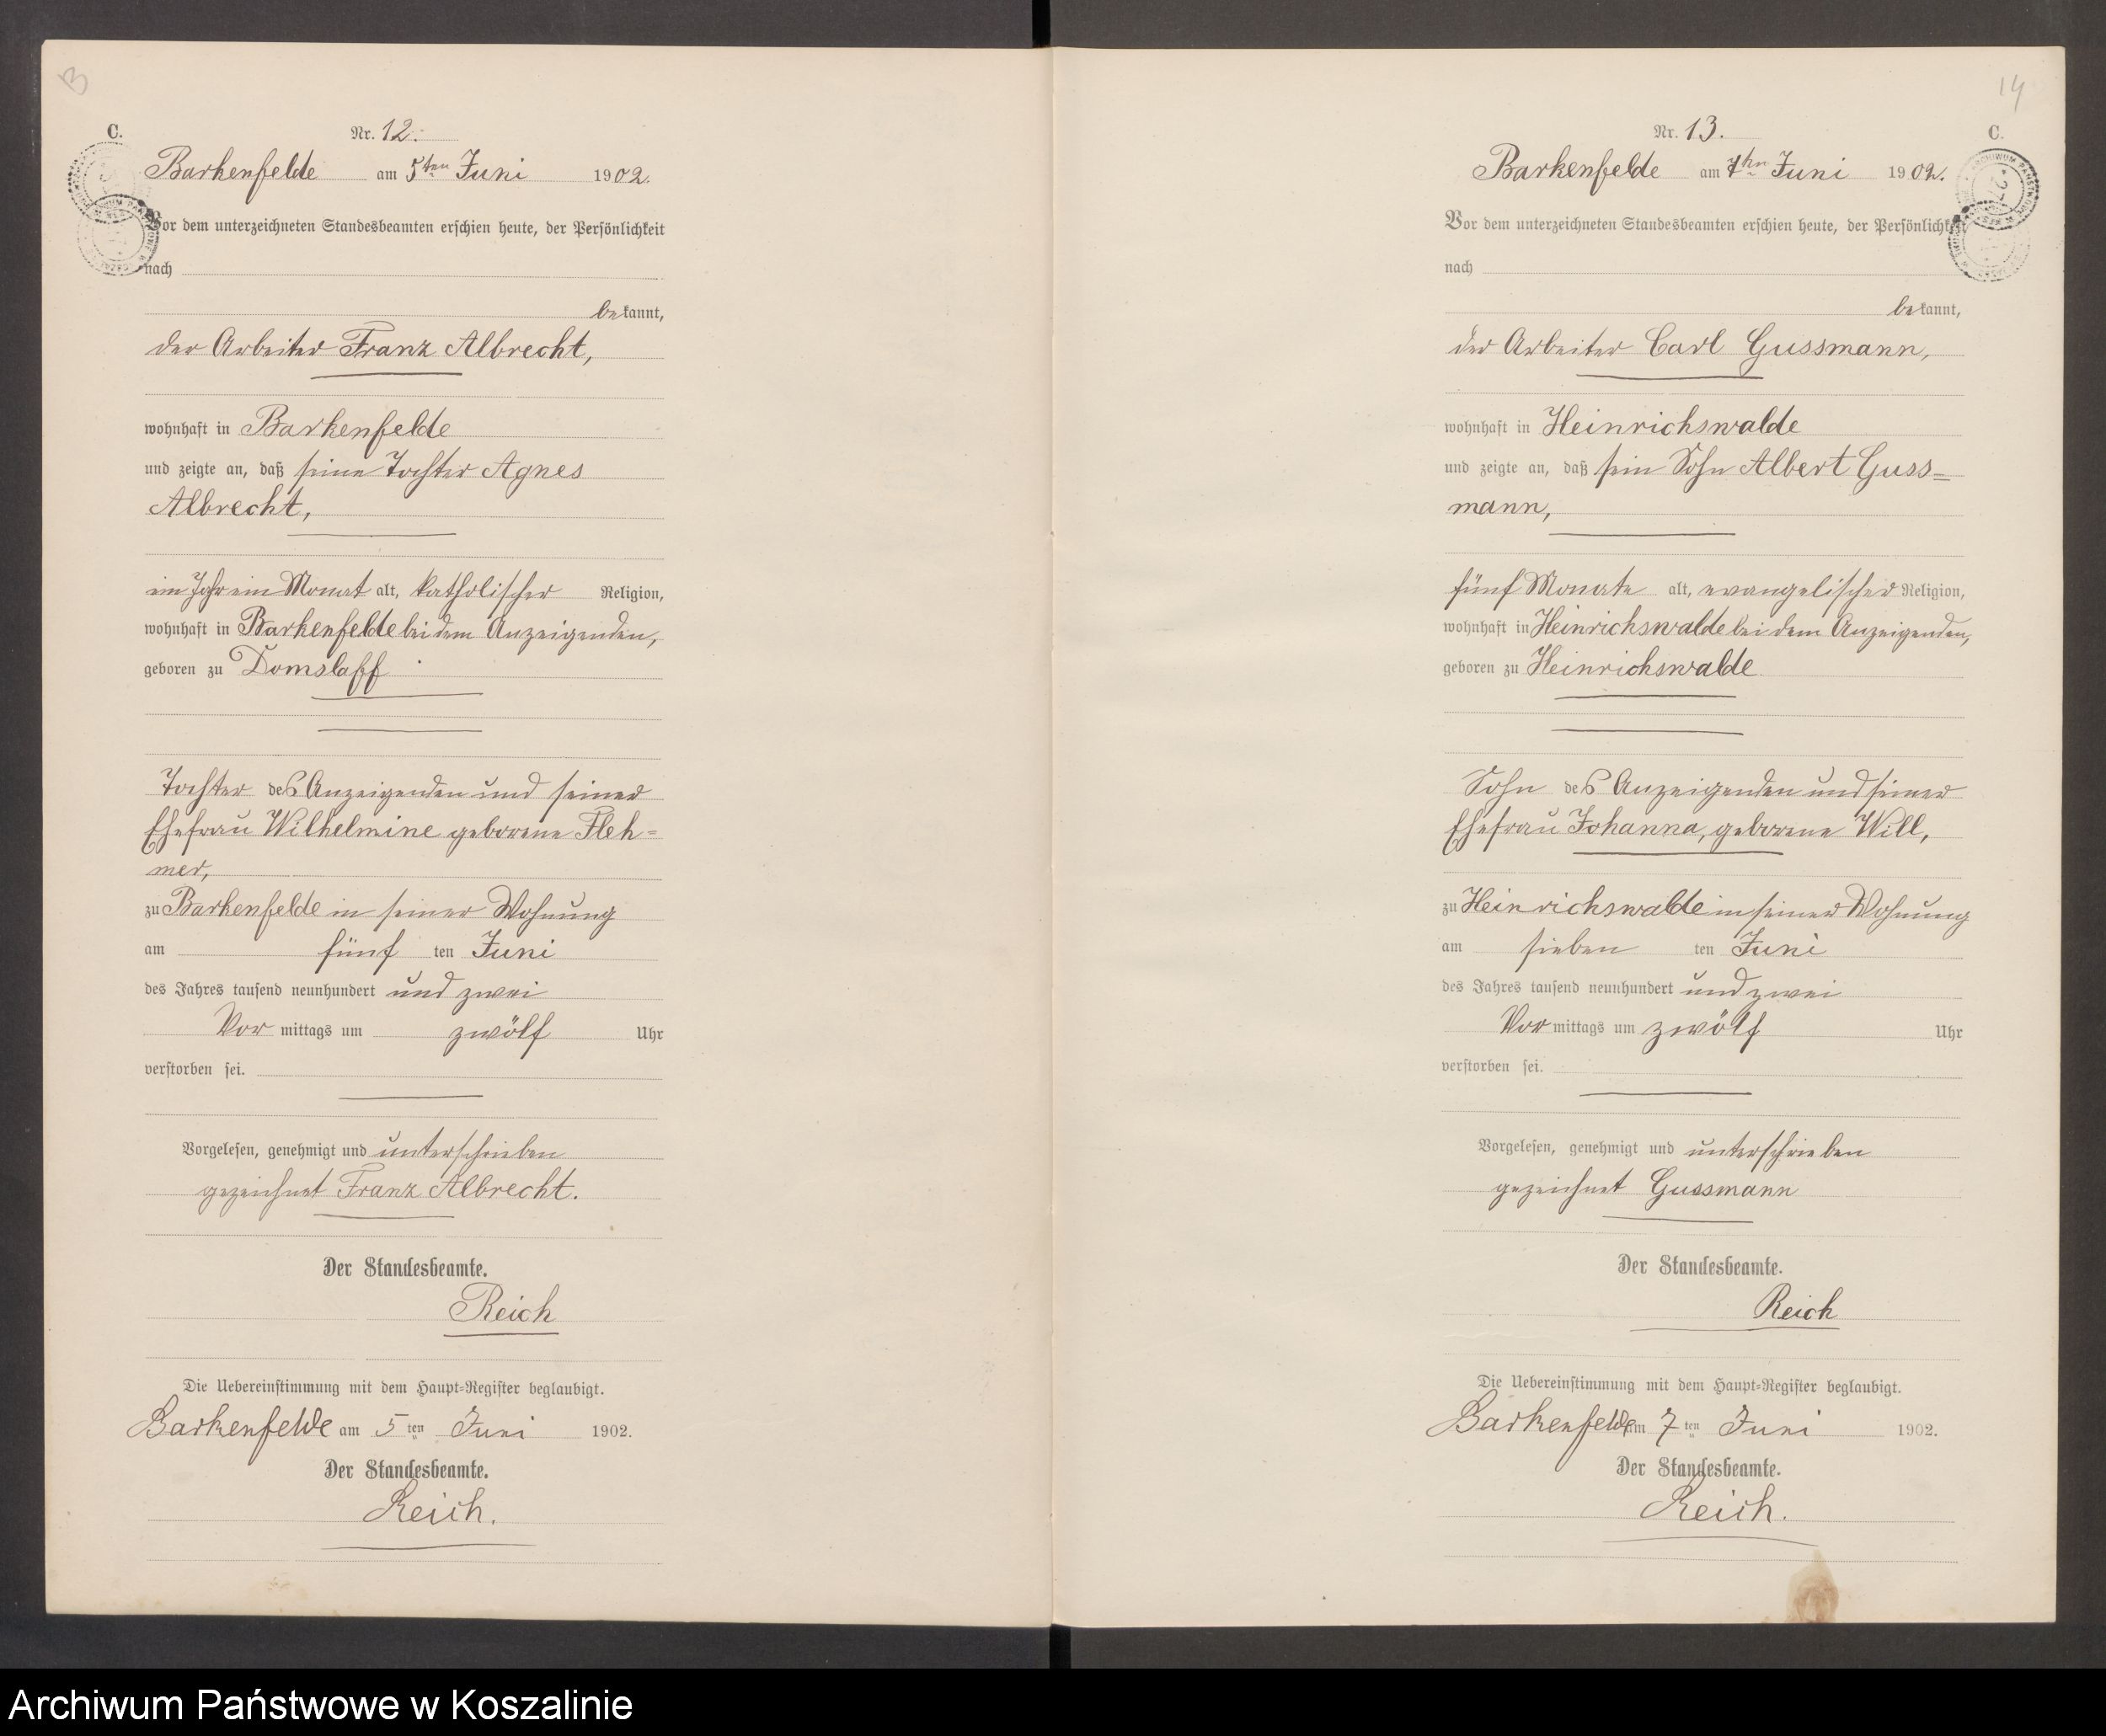 B
C.
Nr. 12.
Barkenfelde am 5ten Juni 1902.
Vor dem unterzeichneten Standesbeamten erschien heute, der Persönlichkeit
nach
bekannt,
der Arbeiter Franz Albrecht,
wohnhaft in Barkenfelde
und zeigte an, daß seine Tochter Agnes
Albrecht,
ein Jahr ein Monat alt, katholischer Religion,
wohnhaft in Barkenfelde bei dem Anzeigenden,
geboren zu Domslaff
Tochter des Anzeigenden und seiner
Ehefrau Wilhelmine geborene Fleh=
mer,
zu Barkenfelde in seiner Wohnung
am fünf ten Juni
des Jahres tausend neunhundert und zwei
Vor mittags um zwölf Uhr
verstorben sei.
Vorgelesen, genehmigt und unterschrieben
gezeichnet Franz Albrecht.
Der Standesbeamte.
Reich
Die Uebereinstimmung mit dem Haupt=Register beglaubigt.
Barkenfelde am 5 ten Juni 1902.
Der Standesbeamte.
Reich.
14
Nr. 13.
C.
Barkenfelde am 7ten Juni 1902.
Vor dem unterzeichneten Standesbeamten erschien heute, der Persönlichkeit
nach
bekannt,
der Arbeiter Carl Gussmann,
wohnhaft in Heinrichswalde
und zeigte an, daß sein Sohn Albert Guss=
mann,
fünf Monate alt, evangelischer Religion,
wohnhaft in Heinrichswalde bei dem Anzeigenden,
geboren zu Heinrichswalde
Sohn des Anzeigenden und seiner
Ehefrau Johanna, geborene Will,
zu Heinrichswalde in seiner Wohnung
am sieben ten Juni
des Jahres tausend neunhundert und zwei
Vor mittags um zwölf Uhr
verstorben sei.
Vorgelesen, genehmigt und unterschrieben
gezeichnet Gussmann
Der Standesbeamte.
Reich
Die Uebereinstimmung mit dem Haupt=Register beglaubigt.
Barkenfelde am 7 ten Juni 1902.
Der Standesbeamte.
Reich.
Archiwum Państwowe w Koszalinie